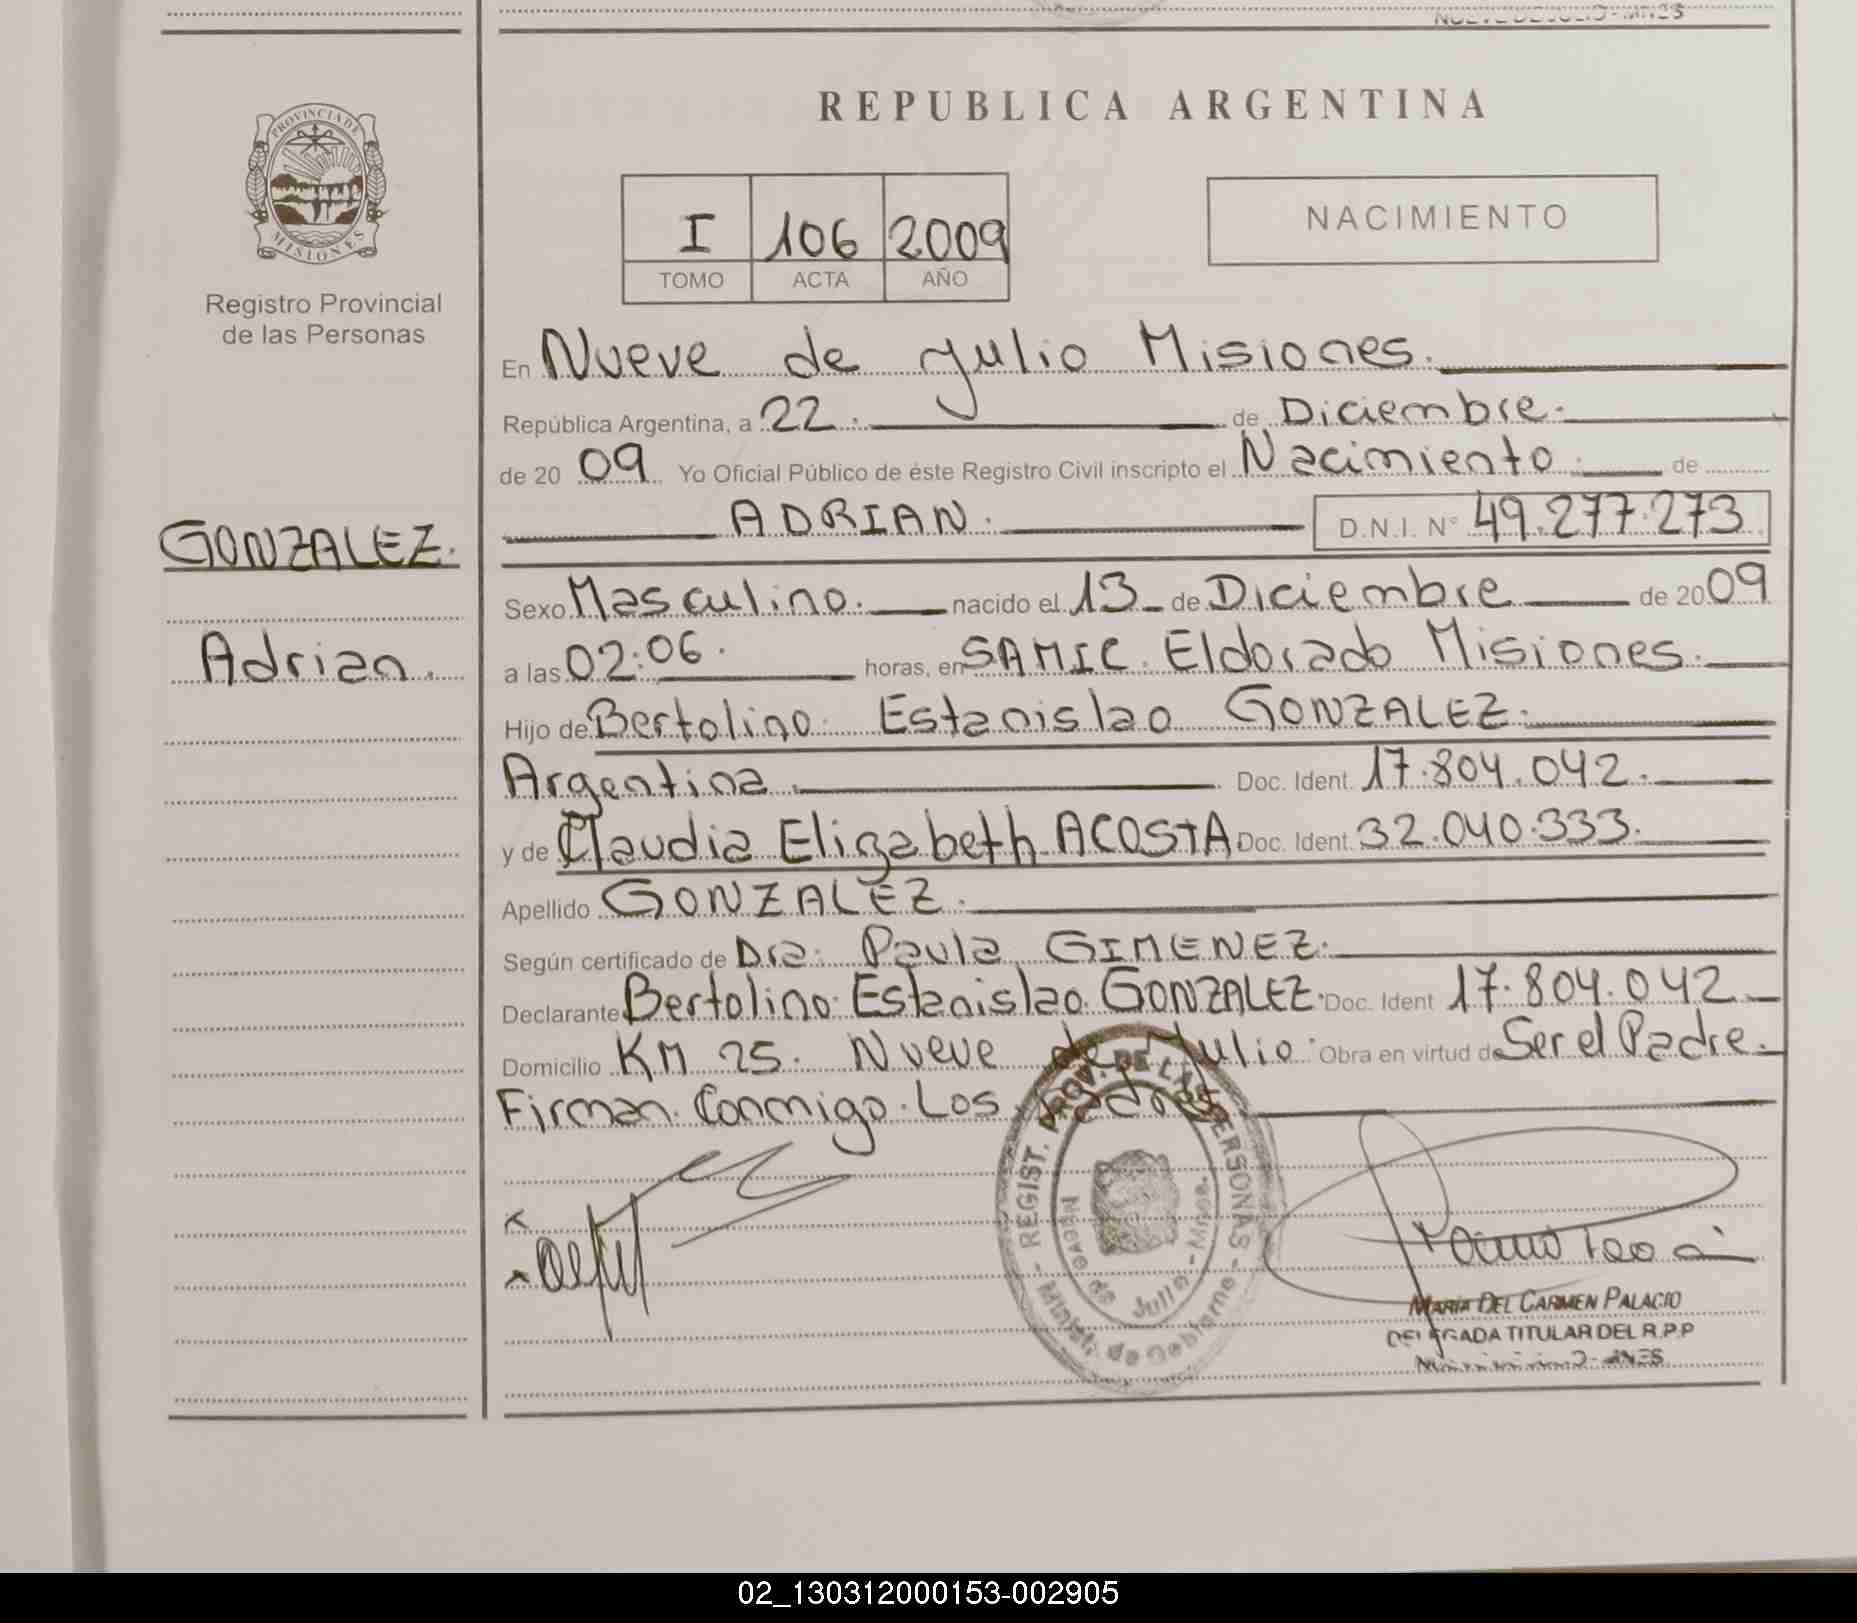 REPUBLICA ARGENTINA
PROVINCIA DE
MISIONES
Registro Provincial
de las Personas
I 106 2009
TOMO ACTA AÑO
NACIMIENTO
En Nueve de Julio Misiones.
República Argentina, a 22. de Diciembre.
de 20 09 Yo Oficial Público de éste Registro Civil inscripto el Nacimiento. de
ADRIAN. D.N.I. N° 49.277.273
GONZALEZ.
Sexo Masculino. nacido el 13 de Diciembre de 20 09
Adrian.
a las 02:06. horas, en SAMIC. Eldorado Misiones.
Hijo de Bertolino Estanislao GONZALEZ.
Argentina. Doc. Ident. 17.804.042.
y de Claudia Elizabeth ACOSTA Doc. Ident. 32.040.333.
Apellido GONZALEZ.
Según certificado de Dra. Paula GIMENEZ.
Declarante Bertolino Estanislao GONZALEZ. Doc. Ident 17.804.042.
Domicilio KM 25. Nueve de Julio. Obra en virtud de Ser el Padre.
Firman Conmigo. Los Padres.
- REGIST. PROV. DE LAS PERSONAS -
Minist. de Gobierno
Nueve de Julio - Mnes.
MARIA DEL CARMEN PALACIO
DELEGADA TITULAR DEL R.P.P
02_130312000153-002905